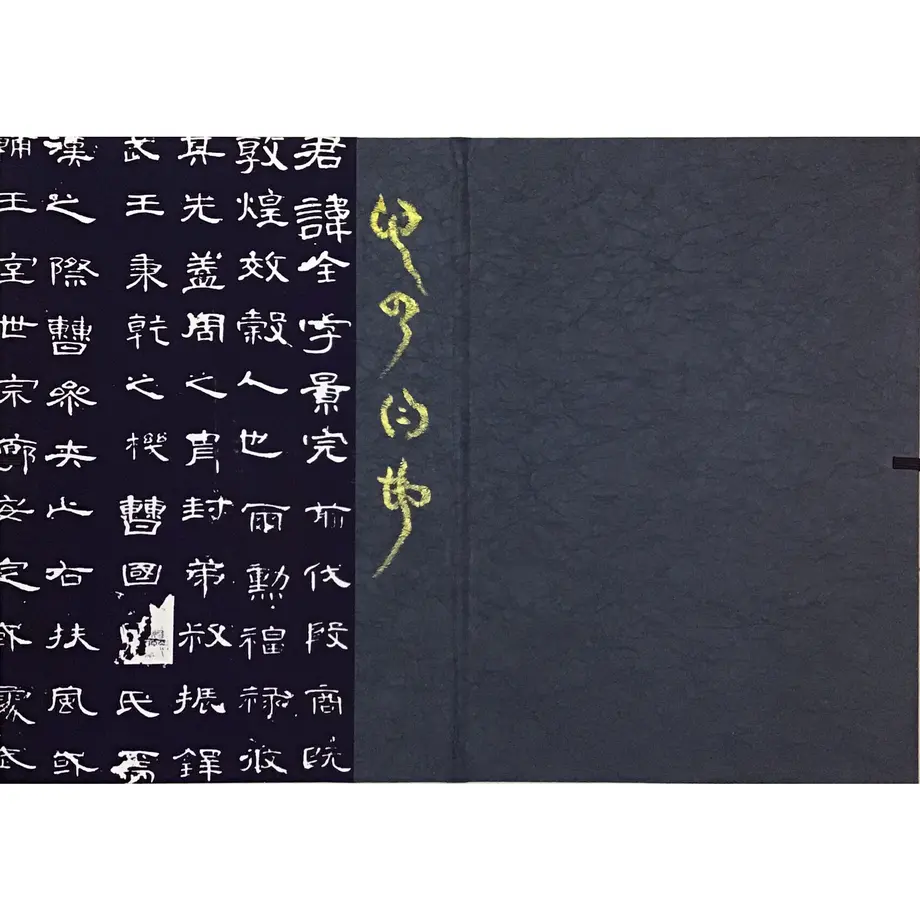 君諱全字景完前伐殷商既
敦煌效穀人也爾勳福祿攸
其先蓋周之胄封弟叔振鐸
武王秉乾之機曹國氏焉
漢之際曹參夾止右扶風或
輔王室世宗廓安定或處武